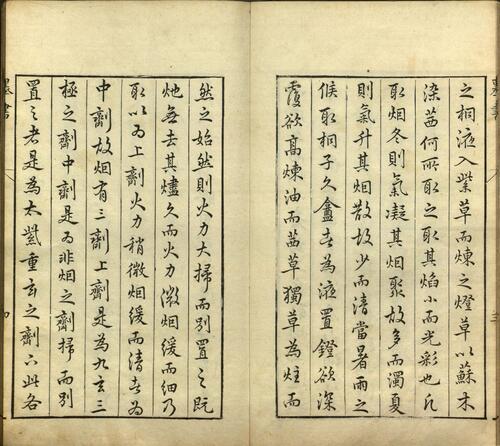 之桐液入紫草而煉之燈草以蘇木
染茜何所取之取其焰小而光彩也凡
取烟冬則氣凝其烟聚故多而濁夏
則氣升其烟散故少而清當暑雨之
候取桐子久盦去為液置鐙欲深
覆欲高煉油而茜草獨草為炷而
然之始然則火力大掃而別置之既
灺無去其燼久而火力微烟緩而細乃
取以為上劑火力稍微烟緩而清去為
中劑故烟有三劑上劑是為九玄三
極之劑中劑是為非烟之劑掃而別
置之者是為太紫重玄之劑六此各
墨書